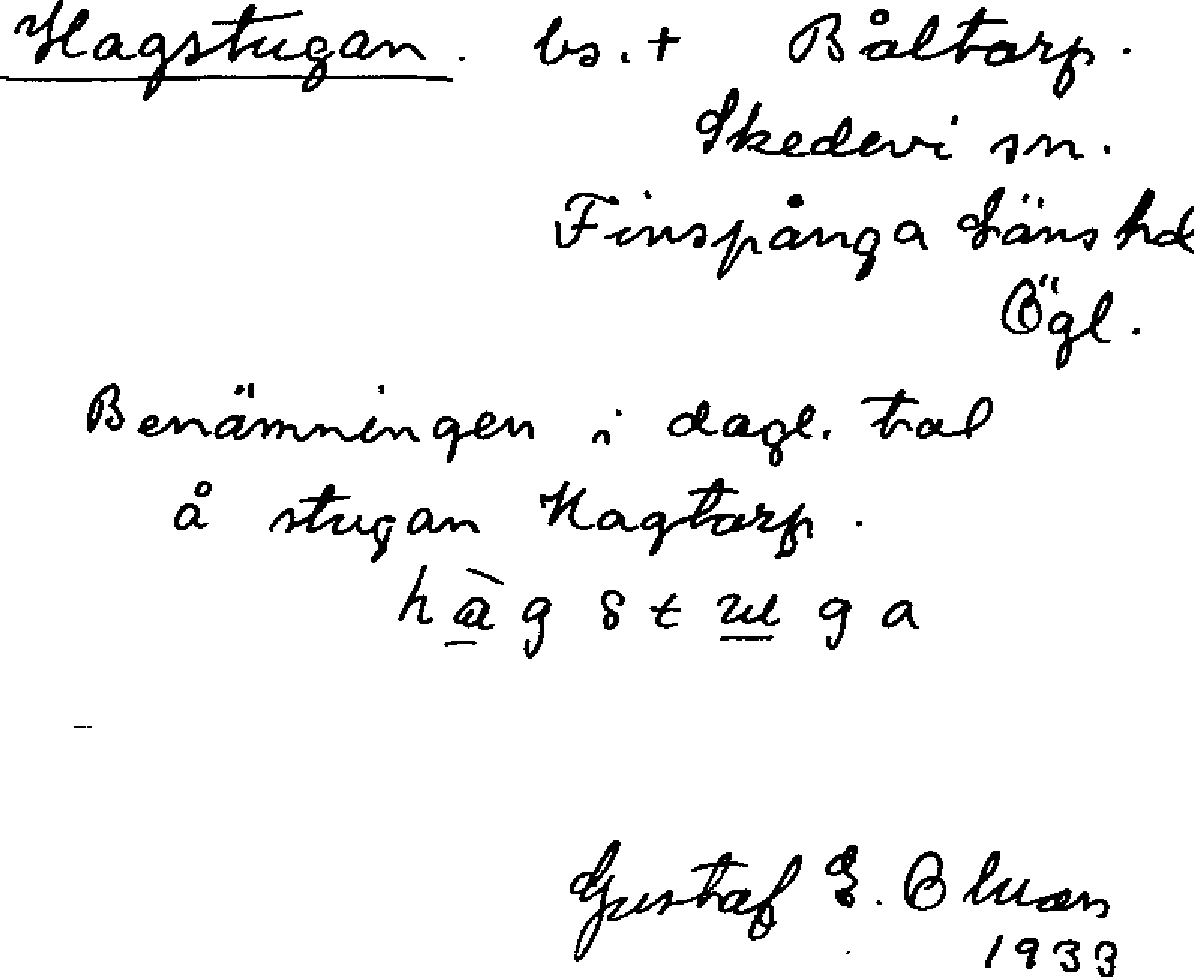 Hagstugan. bs. + Båltorp.
Skedevi sn.
Finspånga Läns hd
Ögl.
Benämningen i dagl. tal
å stugan Hagtorp.
hàgstuga
Gustaf E.
1933